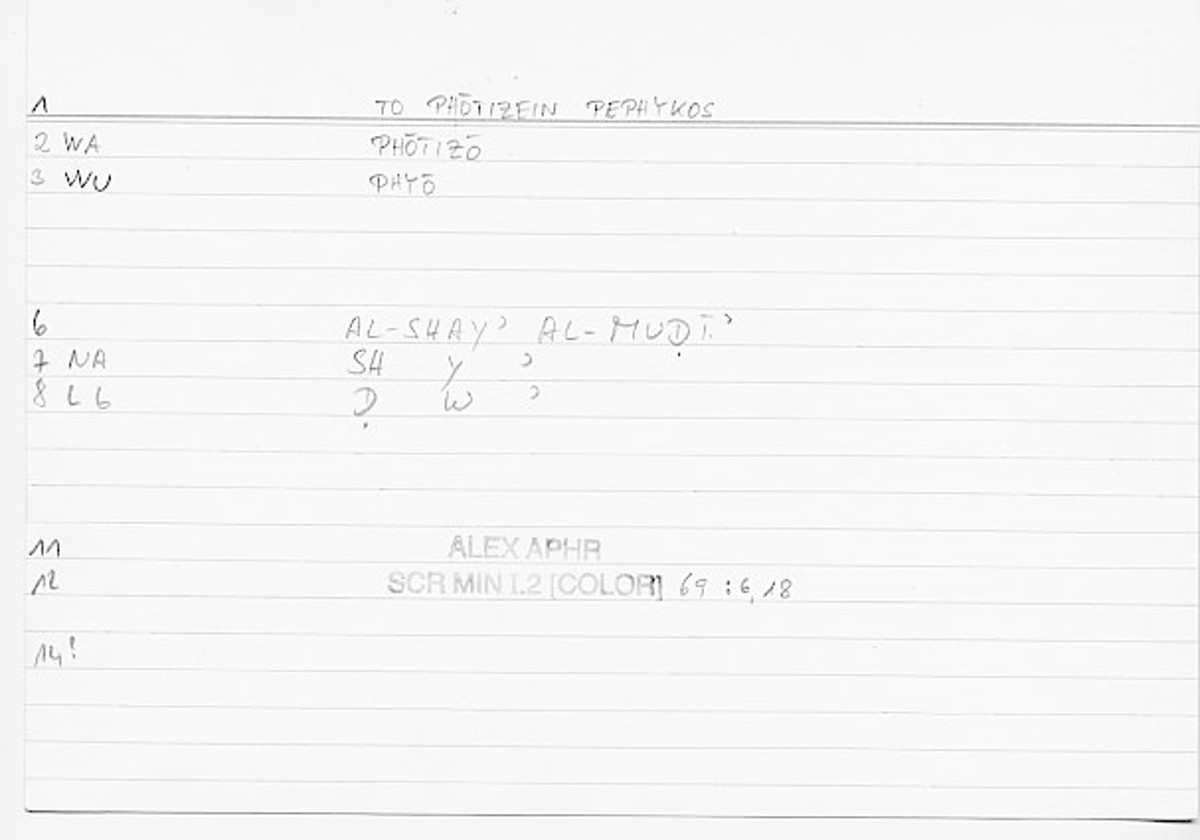 1 TO PHŌTIZEIN PEPHYKOS
2 WA PHŌTIZŌ
3 WU PHYŌ
6 AL-SHAYʾ AL-MUḌĪʾ
7 NA SH Y ʾ
8 L6 Ḍ W ʾ
11 ALEX APHR
12 SCR MIN I.2 [COLOR] 69 : 6, 18
14!